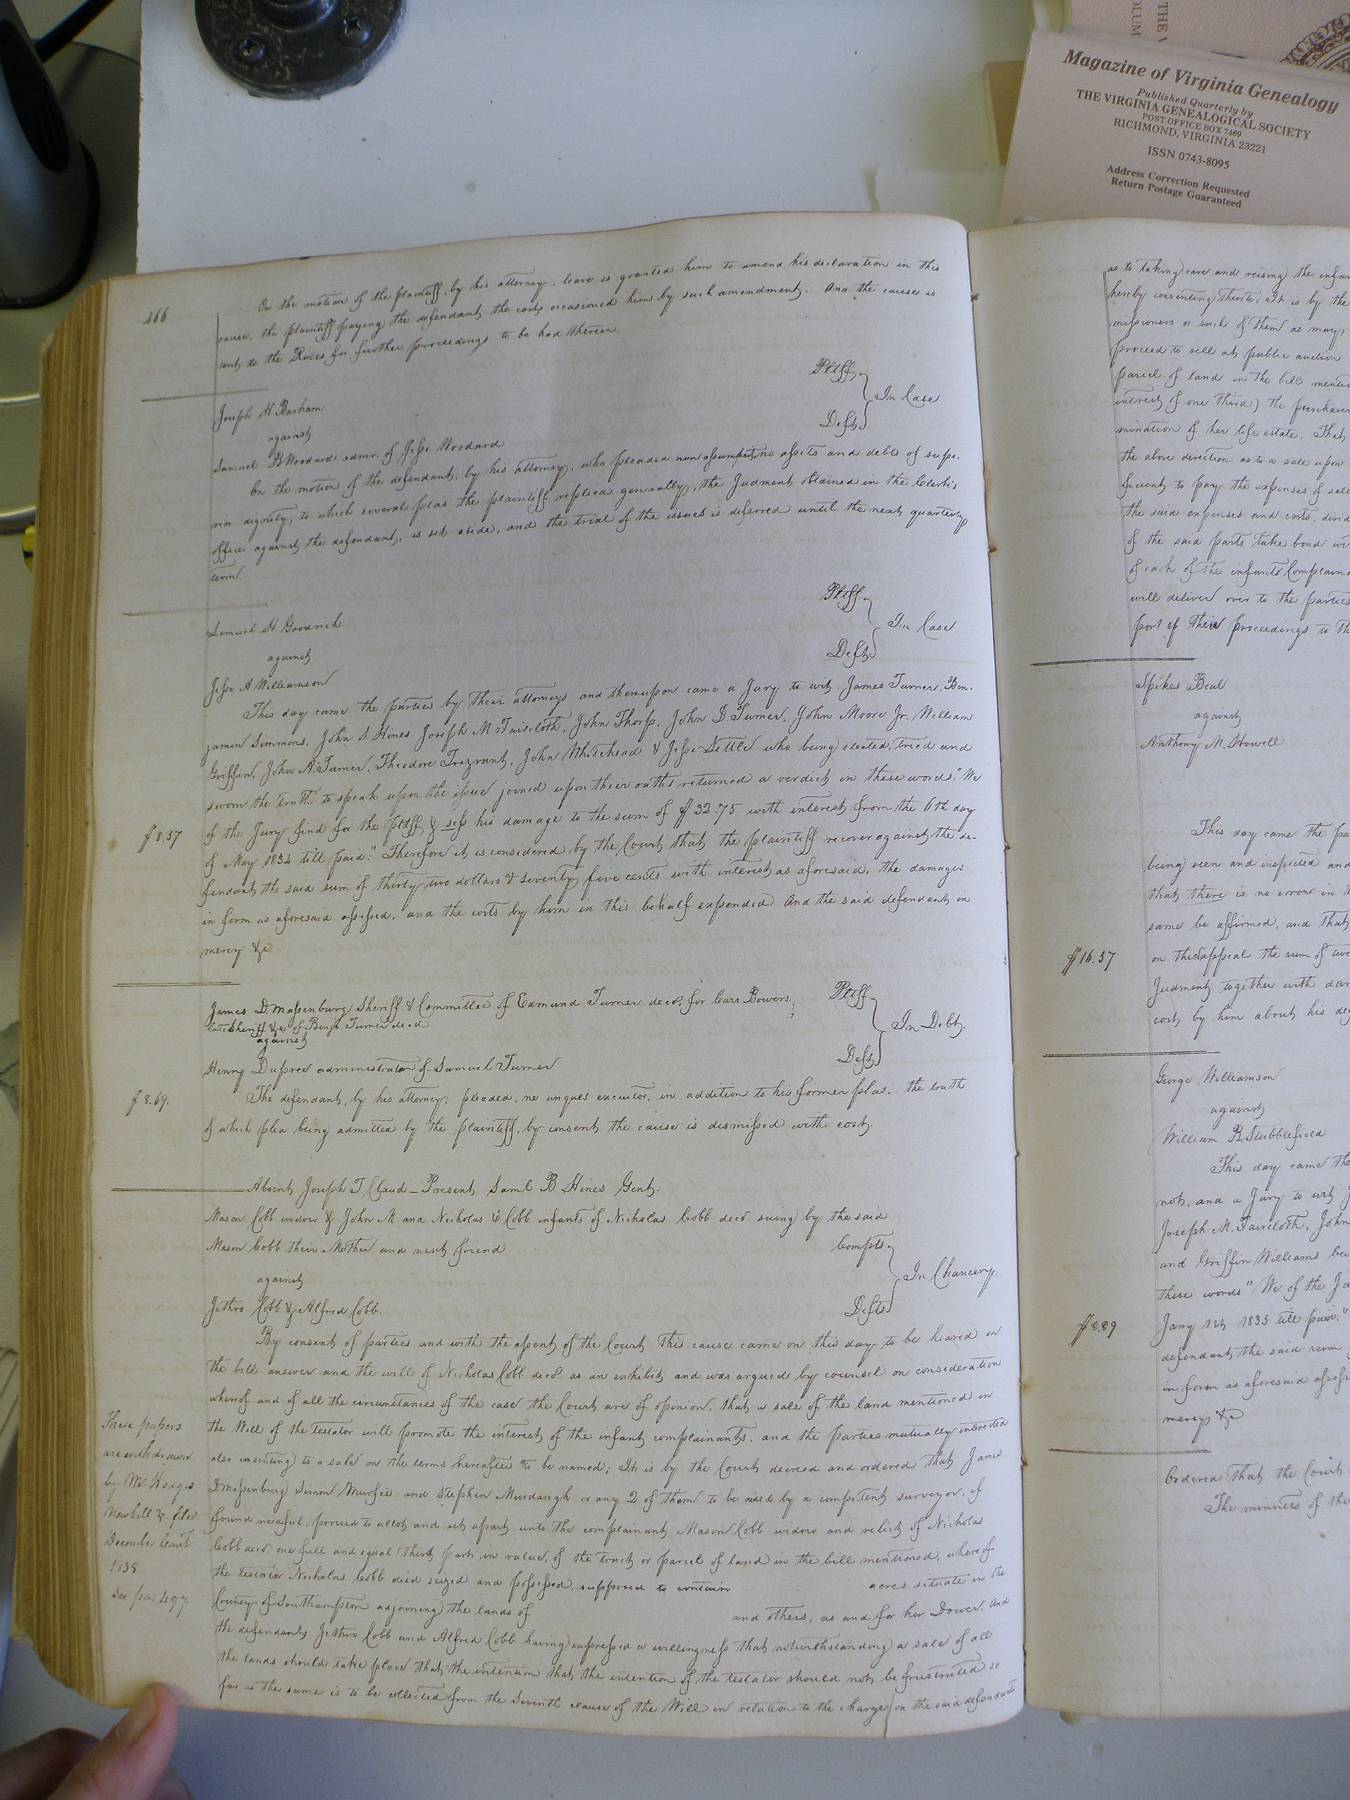 THE V
OLUM
Magazine of Virginia Genealogy
Published Quarterly by
THE VIRGINIA GENEALOGICAL SOCIETY
POST OFFICE BOX 7469
RICHMOND, VIRGINIA 23221
ISSN 0743-8095
Address Correction Requested
Return Postage Guaranteed
On the motion of the plaintiff, by his attorney, leave is granted him to amend his declaration in this
cause, the plaintiff paying the defendant the costs occasioned him by such amendment. And the cause is
sent to the Rules for further proceedings to be had therein.
Joseph H Barham Pltff
against In Case
Samuel B Woodard admr. of Jesse Woodard Deft
On the motion of the defendant, by his attorney, who pleaded non assumpsit, no assets and debts of supe.
rior dignity, to which several pleas the plaintiff replied generally, the Judgment obtained in the Clerk's
office against the defendant, is set aside, and the trial of the issues is deferred until the next quarterly
term.
Samuel H Goodrich Pltff.
against In Case
Jesse A Williamson Deft
This day came the parties by their attorneys and thereupon came a Jury to wit, James Turner, Ben-
jamin Simmons, John S. Hines Joseph M Faircloth, John Thorp, John D Turner, John Moore Jr. William
Griffin, John A. Turner, Theodore Trezvant, John Whitehead & Jesse Settle who being elected, tried and
sworn the truth to speak upon the issue joined upon their oaths returned a verdict in these words "We
$8.57 of the Jury find for the pltff & asss his damage to the sum of $32.75 with interest from the 6th day
of May 1834 till paid." Therefore it is considered by the Court that the plaintiff recover against the de-
fendant the said sum of thirty two dollars & seventy five cents with interest as aforesaid, the damages
in form as aforesaid assessed, and the costs by him in this behalf expended And the said defendant in
mercy &c
James D Massenburg Sheriff & Committee of Edmund Turner decd. for Carr Bowers, Pltff
late Sheriff &c of Benja Turner decd
against In Debt
Henry Dupree administrator of Samuel Turner Deft
$8.69. The defendant, by his attorney, pleaded, ne unques executor, in addition to his former plea. the truth
of which plea being admitted by the plaintiff, by consent the cause is dismissed with cost.
Absent Joseph T Claud - Present Saml. B Hines Gent.
Mason Cobb widow & John M and Nicholas Cobb infants of Nicholas Cobb decd suing by the said
Mason Cobb their Mother and next friend Complts.
against In Chancery,
Jethro Cobb & Alfred Cobb Defts
By consent of parties and with the assent of the Court this cause came on this day to be heared on
the bill answer and the will of Nicholas Cobb decd as an exhibit and was argued by counsel on consideration
whereof and of all the circumstances of the case the Court are of opinion, that a sale of the land mentioned in
the Will of the testator will promote the interest of the infant complainants. and the parties mutually interested
also consenting to a sale on the terms hereafter to be named; It is by the Court decreed and ordered that James
D Massenburg Simon Murfee and Stephen Murdaugh or any 2 of them to be aided by a competent surveyor, if
found needful, proceed to allot and set apart unto the complainant Mason Cobb widow and relict of Nicholas
Cobb decd. one full and equal third part, in value, of the tract or parcel of land in the bill mentioned, whereof
the testator Nicholas Cobb died seized and possessed, supposed to contain acres situate in the
County of Southampton adjoining the lands of and others, as and for her Dower. And
the defendants Jethro Cobb and Alfred Cobb having expressed a willingness that notwithstanding a sale of all
the lands should take place that the intention that the intention of the testator should not be frustrated so
far as the same is to be collected from the Seventh clause of the Will in relation to the charge on the said defendants
These papers
are withdrawn
by Mr.
December Court
1838
See pa: 497.
as to taking care and raising the infan
hereby consenting thereto, It is by the
missioners or such of them as may
proceed to sell at public auction
parcel of land in the bill mentio
interest of one third) the purchaser
mination of her life estate. That
the above direction as to a sale upon
ficient to pay the expenses of sale
the said expenses and costs, divid
of the said parts take bond wi
of each of the infants Complain
will deliver over to the parties
port of their proceedings to th
Spikes Beal
against
Anthony M. Howell
This day came the pa
being seen and inspected and
that there is no error in t
same be affirmed, and that
$16.57 on this appeal the sum of
Judgment together with dam
costs by him about his de
George Williamson
against
William B. Stubblefield
This day came the
nots, and a Jury to wit
Joseph M. Faircloth, John
and Griffin Williams be
these words "We of the Ju
$8.89 Jany 1st 1835 till paid."
defendant the said sum
in form as aforesaid assess
mercy &c
Ordered that the Court
The minutes of the